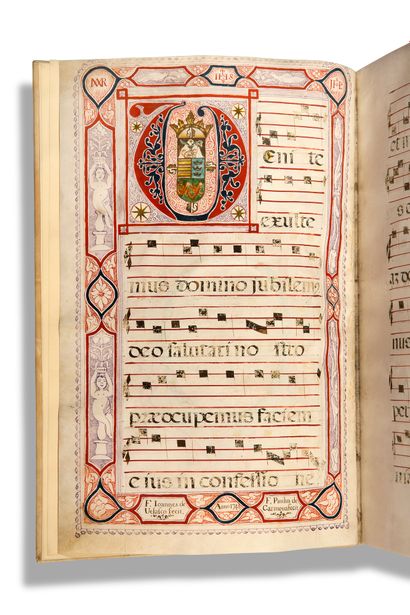 VEni te
exulte
mus domino jubilem9
deo salutari no stro
præocupemus faciem
e ius in confessio ne
F. Ioannes de
Velasco fecit.
Anno
F. Paulus de
Carmona fecit